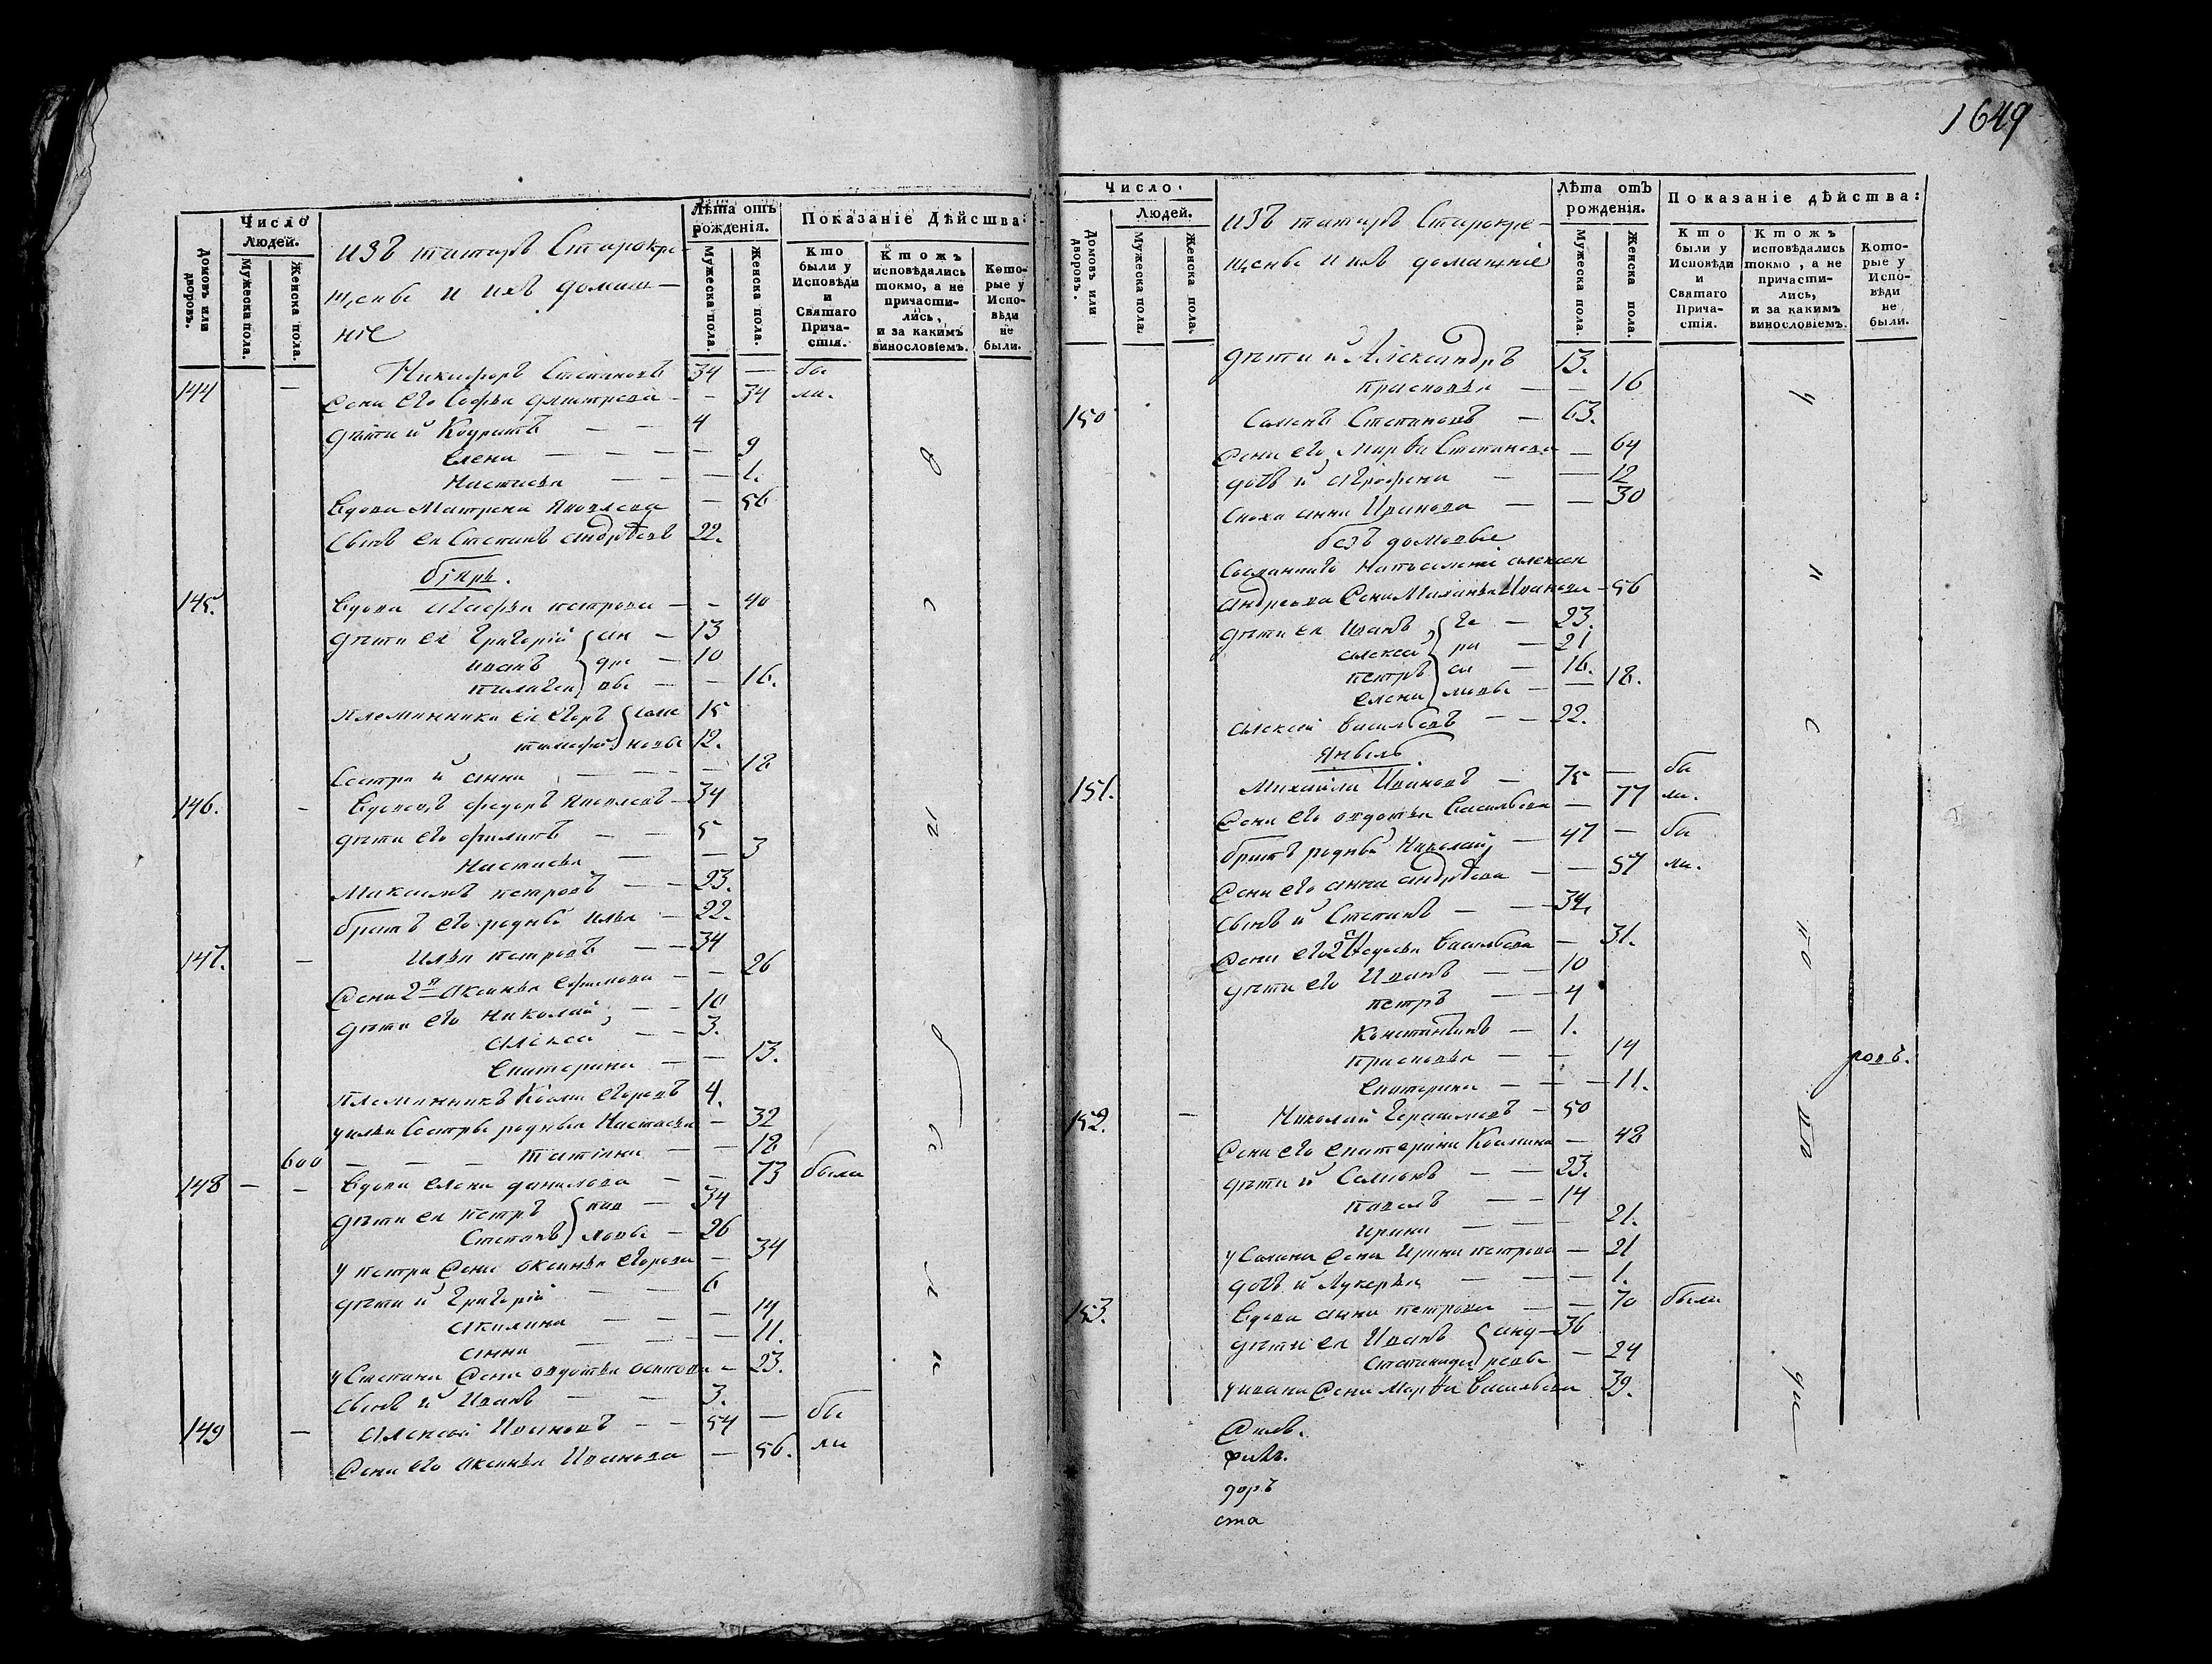 1649
Число Людей.
Домовъ или дворовъ.
Мужеска пола.
Женска пола.
изъ татаръ Старокре-
щены и ихъ домаш-
ніе
Лѣта отъ рожденія.
Мужеска пола.
Женска пола.
Показаніе Дѣйства:
Кто были у Исповѣди и Святаго Причастія.
Ктожъ исповѣдались токмо, а не причастились, и за какимъ винословіемъ.
Которые у Исповѣди не были.
144 — Никифоръ Степановъ 34 — бы
Жена его Софья Дмитрева — 34 ли.
дѣти и — — 4
Елена — — — — 9
Настасья — — — 1.
Вдова Матрена Яковлева — 56
Сынъ ея Степанъ андрѣевъ 22.
145. Вдова петрова — — 40
дѣти ея Григорій ан — 13
иванъ дре — 10
пелагея вы — — 16.
племянники ея Егоръ семе 15
тимофей новы 12.
Сестра и анна — — — 18
146. — Вдовецъ федоръ Яковлевъ — 34
дѣти его филипъ — — 5
Настасья — — 3
Максимъ петровъ — — 23.
братъ его родный илья — 22.
147. — Илья петровъ — — 34
Жена 2я Аксинья Ефимова — — 26
дѣти его Николай, — — 10
Алексей — — 3.
Екатерина — — 13.
племянникъ Косма Егоровъ 4.
у ильи Сестры родныя Настасья — 32
600 — — — Татiяна — — 18
148 — — Вдова Елена данилова — — 73 была
дѣти ея петръ пав — 34
Степанъ ловы — 26
у петра Жена оксинья Егорова — 34
дѣти и Григорій — — 6
акилина — — — 14
анна — — — — 11.
у Степана Жена авдотья осипова — 23.
Сынъ и Иванъ — — 3.
149 — Алексей Ивановъ — — 54 — бы
Жена его Аксинья Иванова — 56. ли
Число Людей.
Домовъ или дворовъ.
Мужеска пола.
Женска пола.
изъ татаръ Старокре-
щены и ихъ домашніе
Лѣта отъ рожденія.
Мужеска пола.
Женска пола.
Показаніе дѣйства:
Кто были у Исповѣди и Святаго Причастія.
Ктожъ исповѣдались токмо, а не причастились, и за какимъ винословіемъ.
Которые у Исповѣди не были.
дѣти и Александръ 13.
прасковья — — 16
150 Семенъ Степановъ — 63.
Жена его Марѳа Степанова — 64
дочь и Агрофена — — 12
Сноха анна Иванова — — 30
безъ домовые
Сосланнаго на поселеніе алексея
андреева Жена Маланья Иванова — 56
дѣти ея Иванъ ге — 23.
алексей ра — 21
петръ си — 16.
елена мовы — — 18.
алексей Васильевъ — — 22.
151. Михаила Ивановъ — 75 — бы
Жена его авдотья Васильева — 77 ли.
братъ родный Николай, — 47 — бы
Жена его анна андрѣева — — 57 ли.
Сынъ и Степанъ — — 34.
Жена его 2я Ѳедосья Васильева — 31.
дѣти его Иванъ — — 10
петръ — — 4
Константинъ — 1.
прасковья — — 14
Екатерина — — — 11.
152. — Николай Герасимовъ — 50
Жена его екатерина Козмина — 48
дѣти и Самсонъ — — 23.
павелъ — — 14
ирина — — — 21.
у Самсона Жена Ирина петрова — 21
дочь и Лукерья — — — 1.
153. Вдова анна петрова — — 70 была
дѣти ея Иванъ анд — 36
Степанида реевы — 24
у ивана Жена Марѳа Васильева 39.
ровъ.
доръ
ста